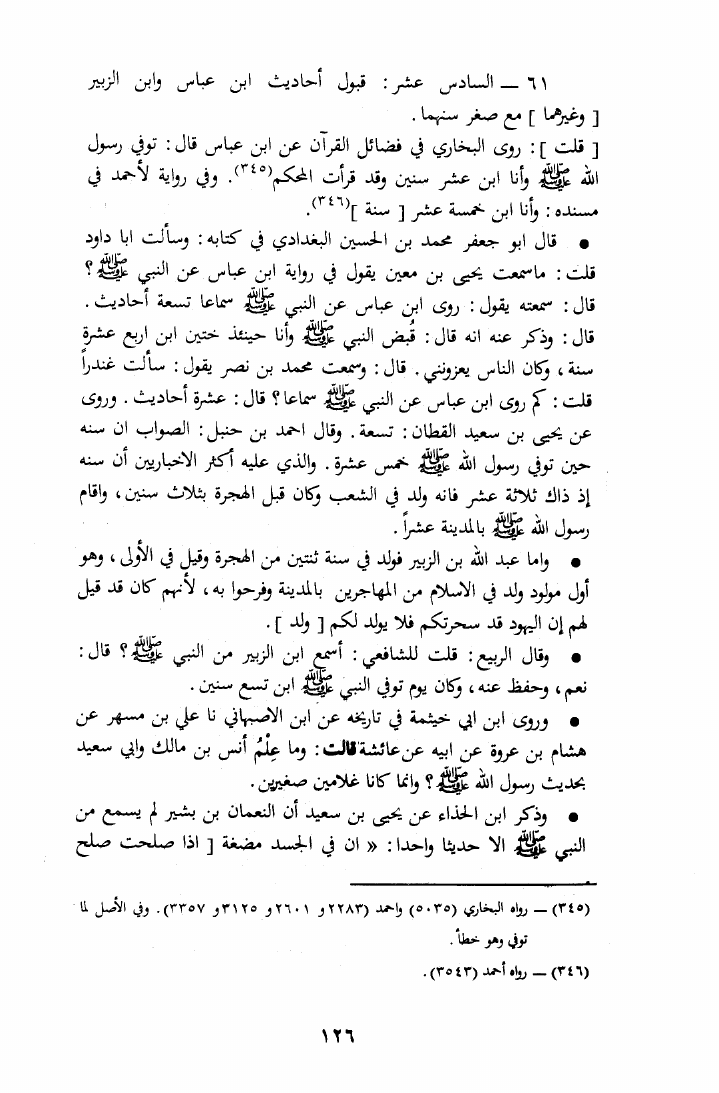 ٦١ — السادس عشر: قبول أحاديث ابن عباس وابن الزبير
[ وغيرهما ] مع صغر سنهما.
[ قلت ]: روى البخاري في فضائل القرآن عن ابن عباس قال: توفي رسول
الله ﷺ وأنا ابن عشر سنين وقد قرأت المحكم(٣٤٥). وفي رواية لأحمد في
مسنده: وأنا ابن خمسة عشر [ سنة ](٣٤٦).
● قال ابو جعفر محمد بن الحسين البغدادي في كتابه: وسألت ابا داود
قلت: ماسمعت يحيى بن معين يقول في رواية ابن عباس عن النبي ﷺ؟
قال: سمعته يقول: روى ابن عباس عن النبي ﷺ سماعا تسعة أحاديث.
قال: وذكر عنه انه قال: قُبض النبي ﷺ وأنا حينئذ ختين ابن اربع عشرة
سنة، وكان الناس يعزونني. قال: وسمعت محمد بن نصر يقول: سألت غندراً
قلت: كم روى ابن عباس عن النبي ﷺ سماعا؟ قال: عشرة أحاديث. وروى
عن يحيى بن سعيد القطان: تسعة. وقال احمد بن حنبل: الصواب ان سنه
حين توفي رسول الله ﷺ خمس عشرة. والذي عليه أكثر الاخباريين أن سنه
إذ ذاك ثلاثة عشر فانه ولد في الشعب وكان قبل الهجرة بثلاث سنين، واقام
رسول الله ﷺ بالمدينة عشراً.
● واما عبد الله بن الزبير فولد في سنة ثنتين من الهجرة وقيل في الأولى، وهو
أول مولود ولد في الاسلام من المهاجرين بالمدينة وفرحوا به، لأنهم كان قد قيل
لهم إن اليهود قد سحرتكم فلا يولد لكم [ ولد ].
● وقال الربيع: قلت للشافعي: أسمع ابن الزبير من النبي ﷺ؟ قال:
نعم، وحفظ عنه، وكان يوم توفي النبي ﷺ ابن تسع سنين.
● وروى ابن ابي خيثمة في تاريخه عن ابن الاصبهاني نا علي بن مسهر عن
هشام بن عروة عن ابيه عن عائشة قالت: وما عِلْمُ أنس بن مالك وابي سعيد
بحديث رسول الله ﷺ؟ وانما كانا غلامين صغيرين.
● وذكر ابن الحذاء عن يحيى بن سعيد أن النعمان بن بشير لم يسمع من
النبي ﷺ الا حديثا واحدا: « ان في الجسد مضغة [ اذا صلحت صلح
(٣٤٥) — رواه البخاري (٥٠٣٥) واحمد (٢٢٨٣ و ٢٦٠١ و ٣١٢٥ و ٣٣٥٧). وفي الأصل لما
توفي وهو خطأ.
(٣٤٦) — رواه أحمد (٣٥٤٣).
١٢٦